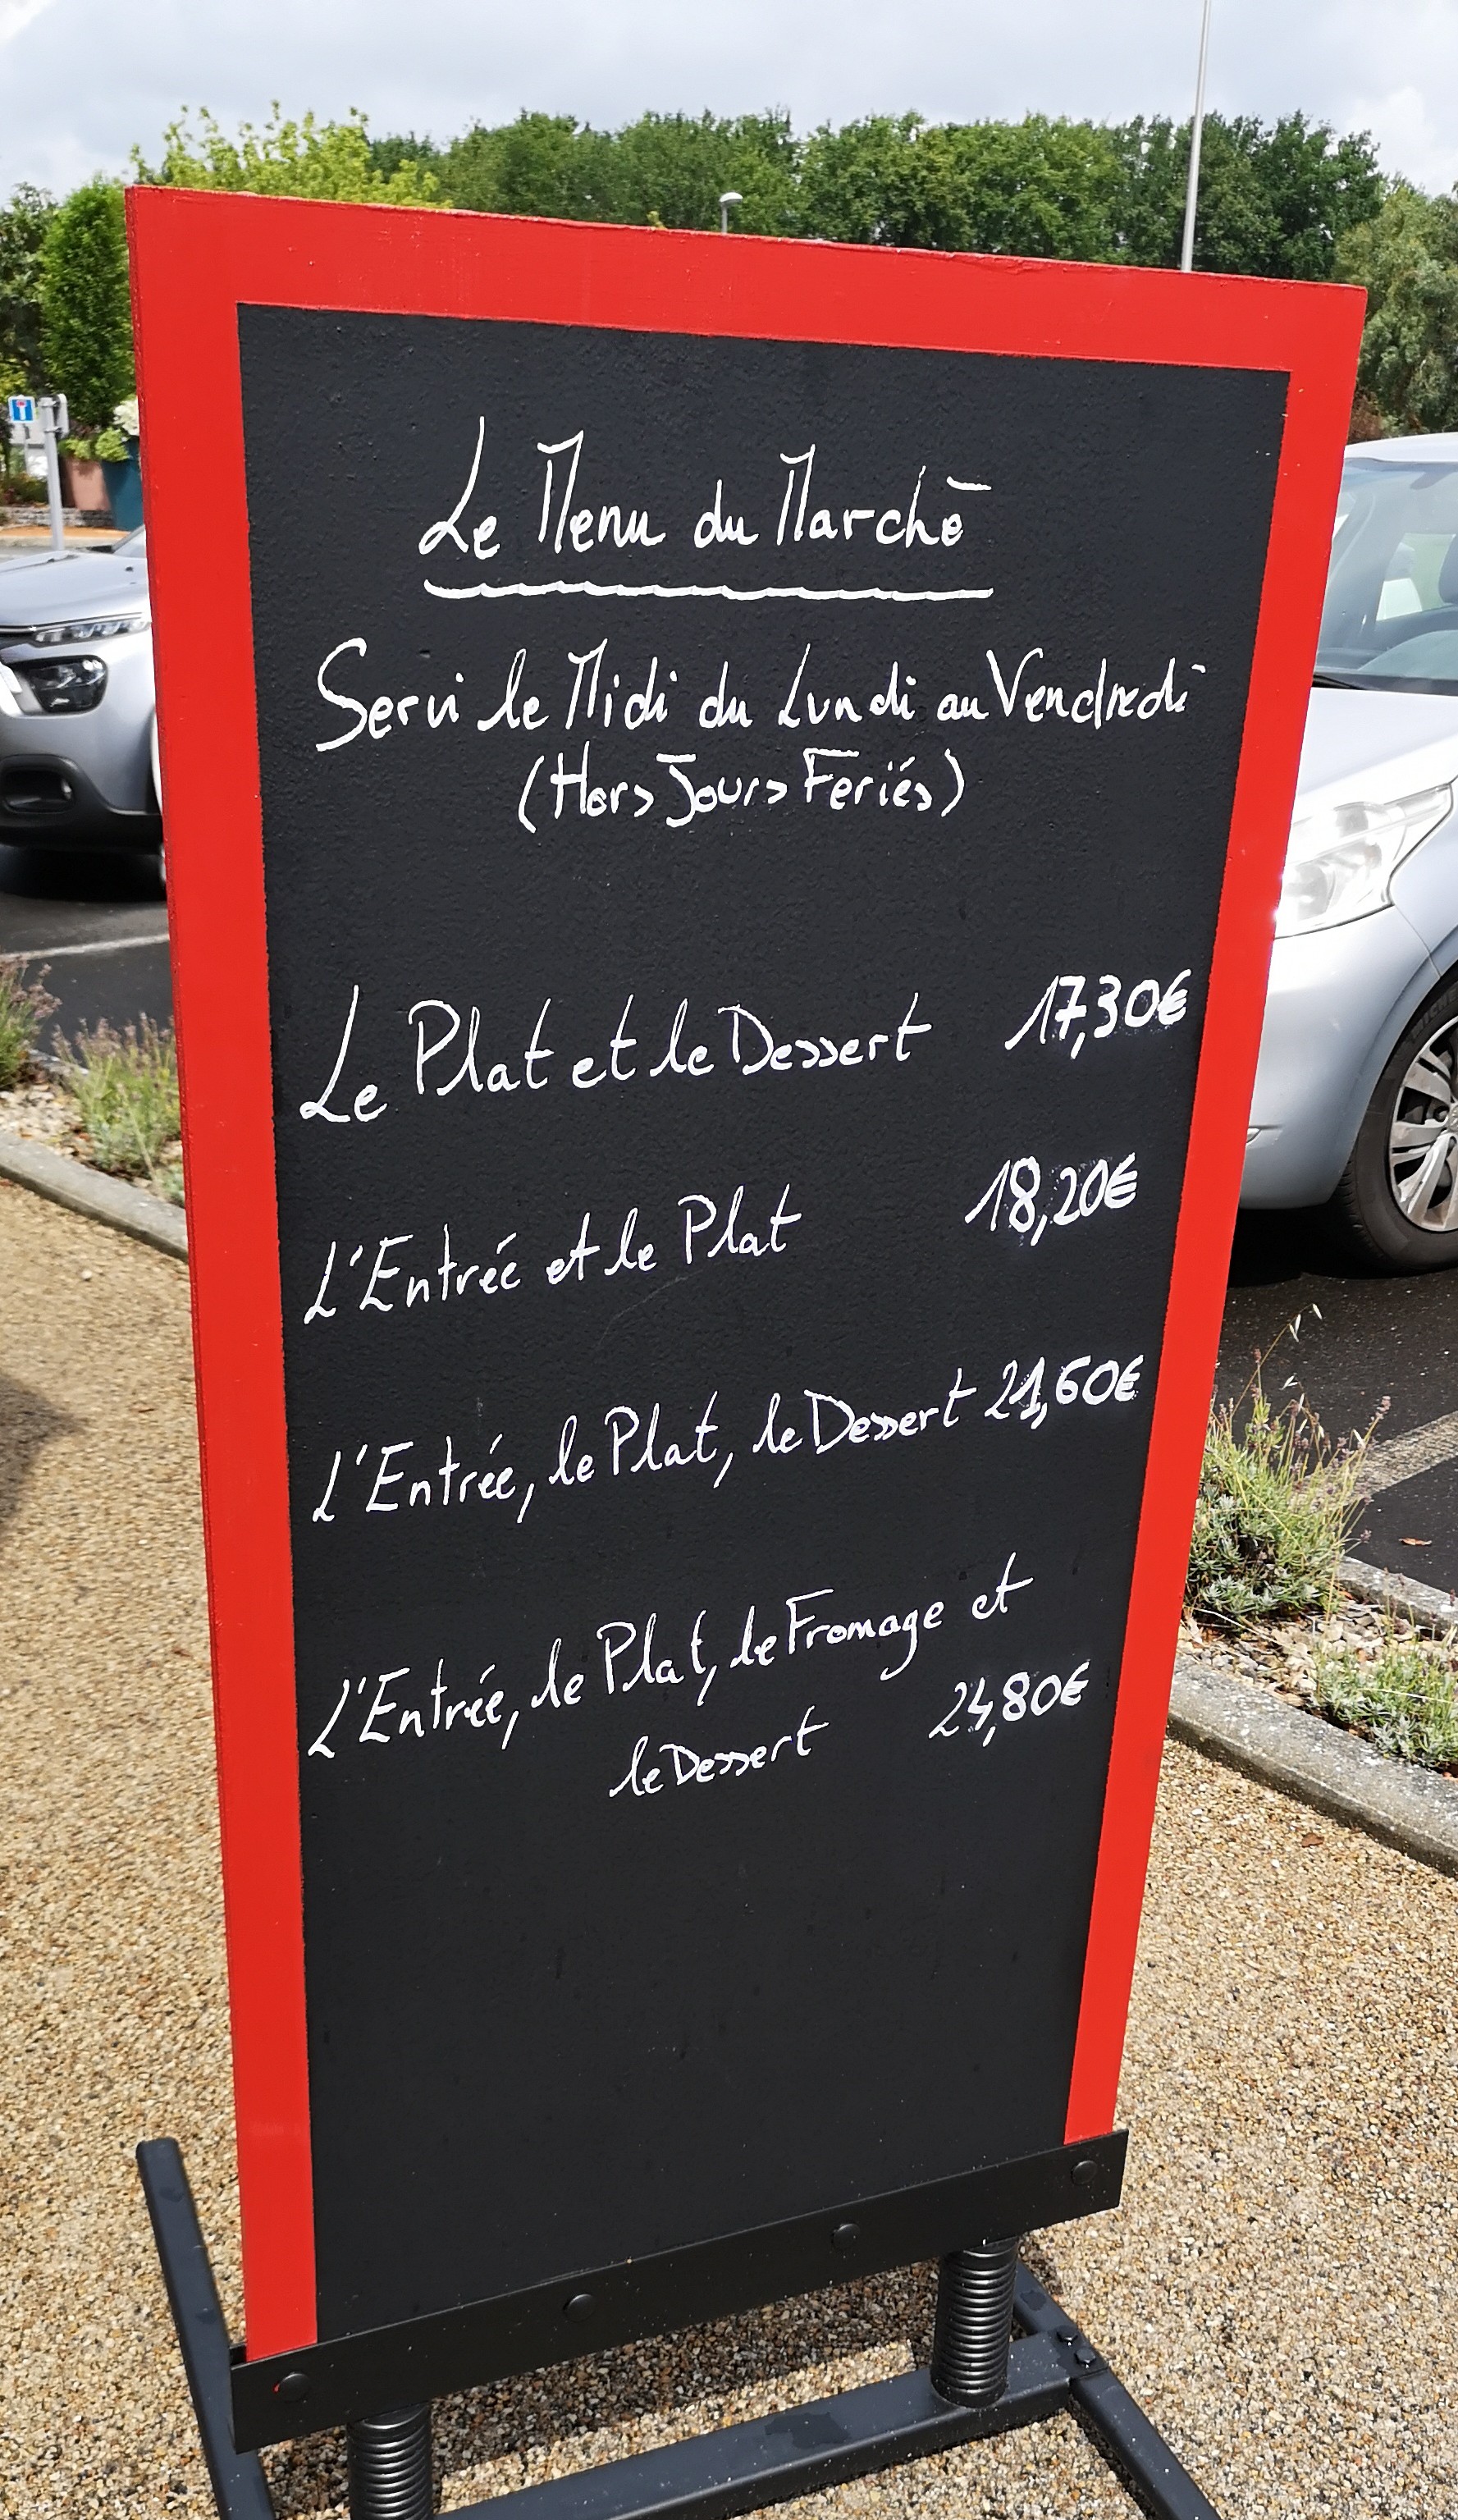 Le Menu du Marché
Servi le Midi du Lundi au Vendredi
(Hors Jours Feriés)
Le Plat et le Dessert 17,30€
L'Entrée et le Plat 18,20€
L'Entrée, le Plat, le Dessert 21,60€
L'Entrée, le Plat, le Fromage et
le Dessert 24,80€